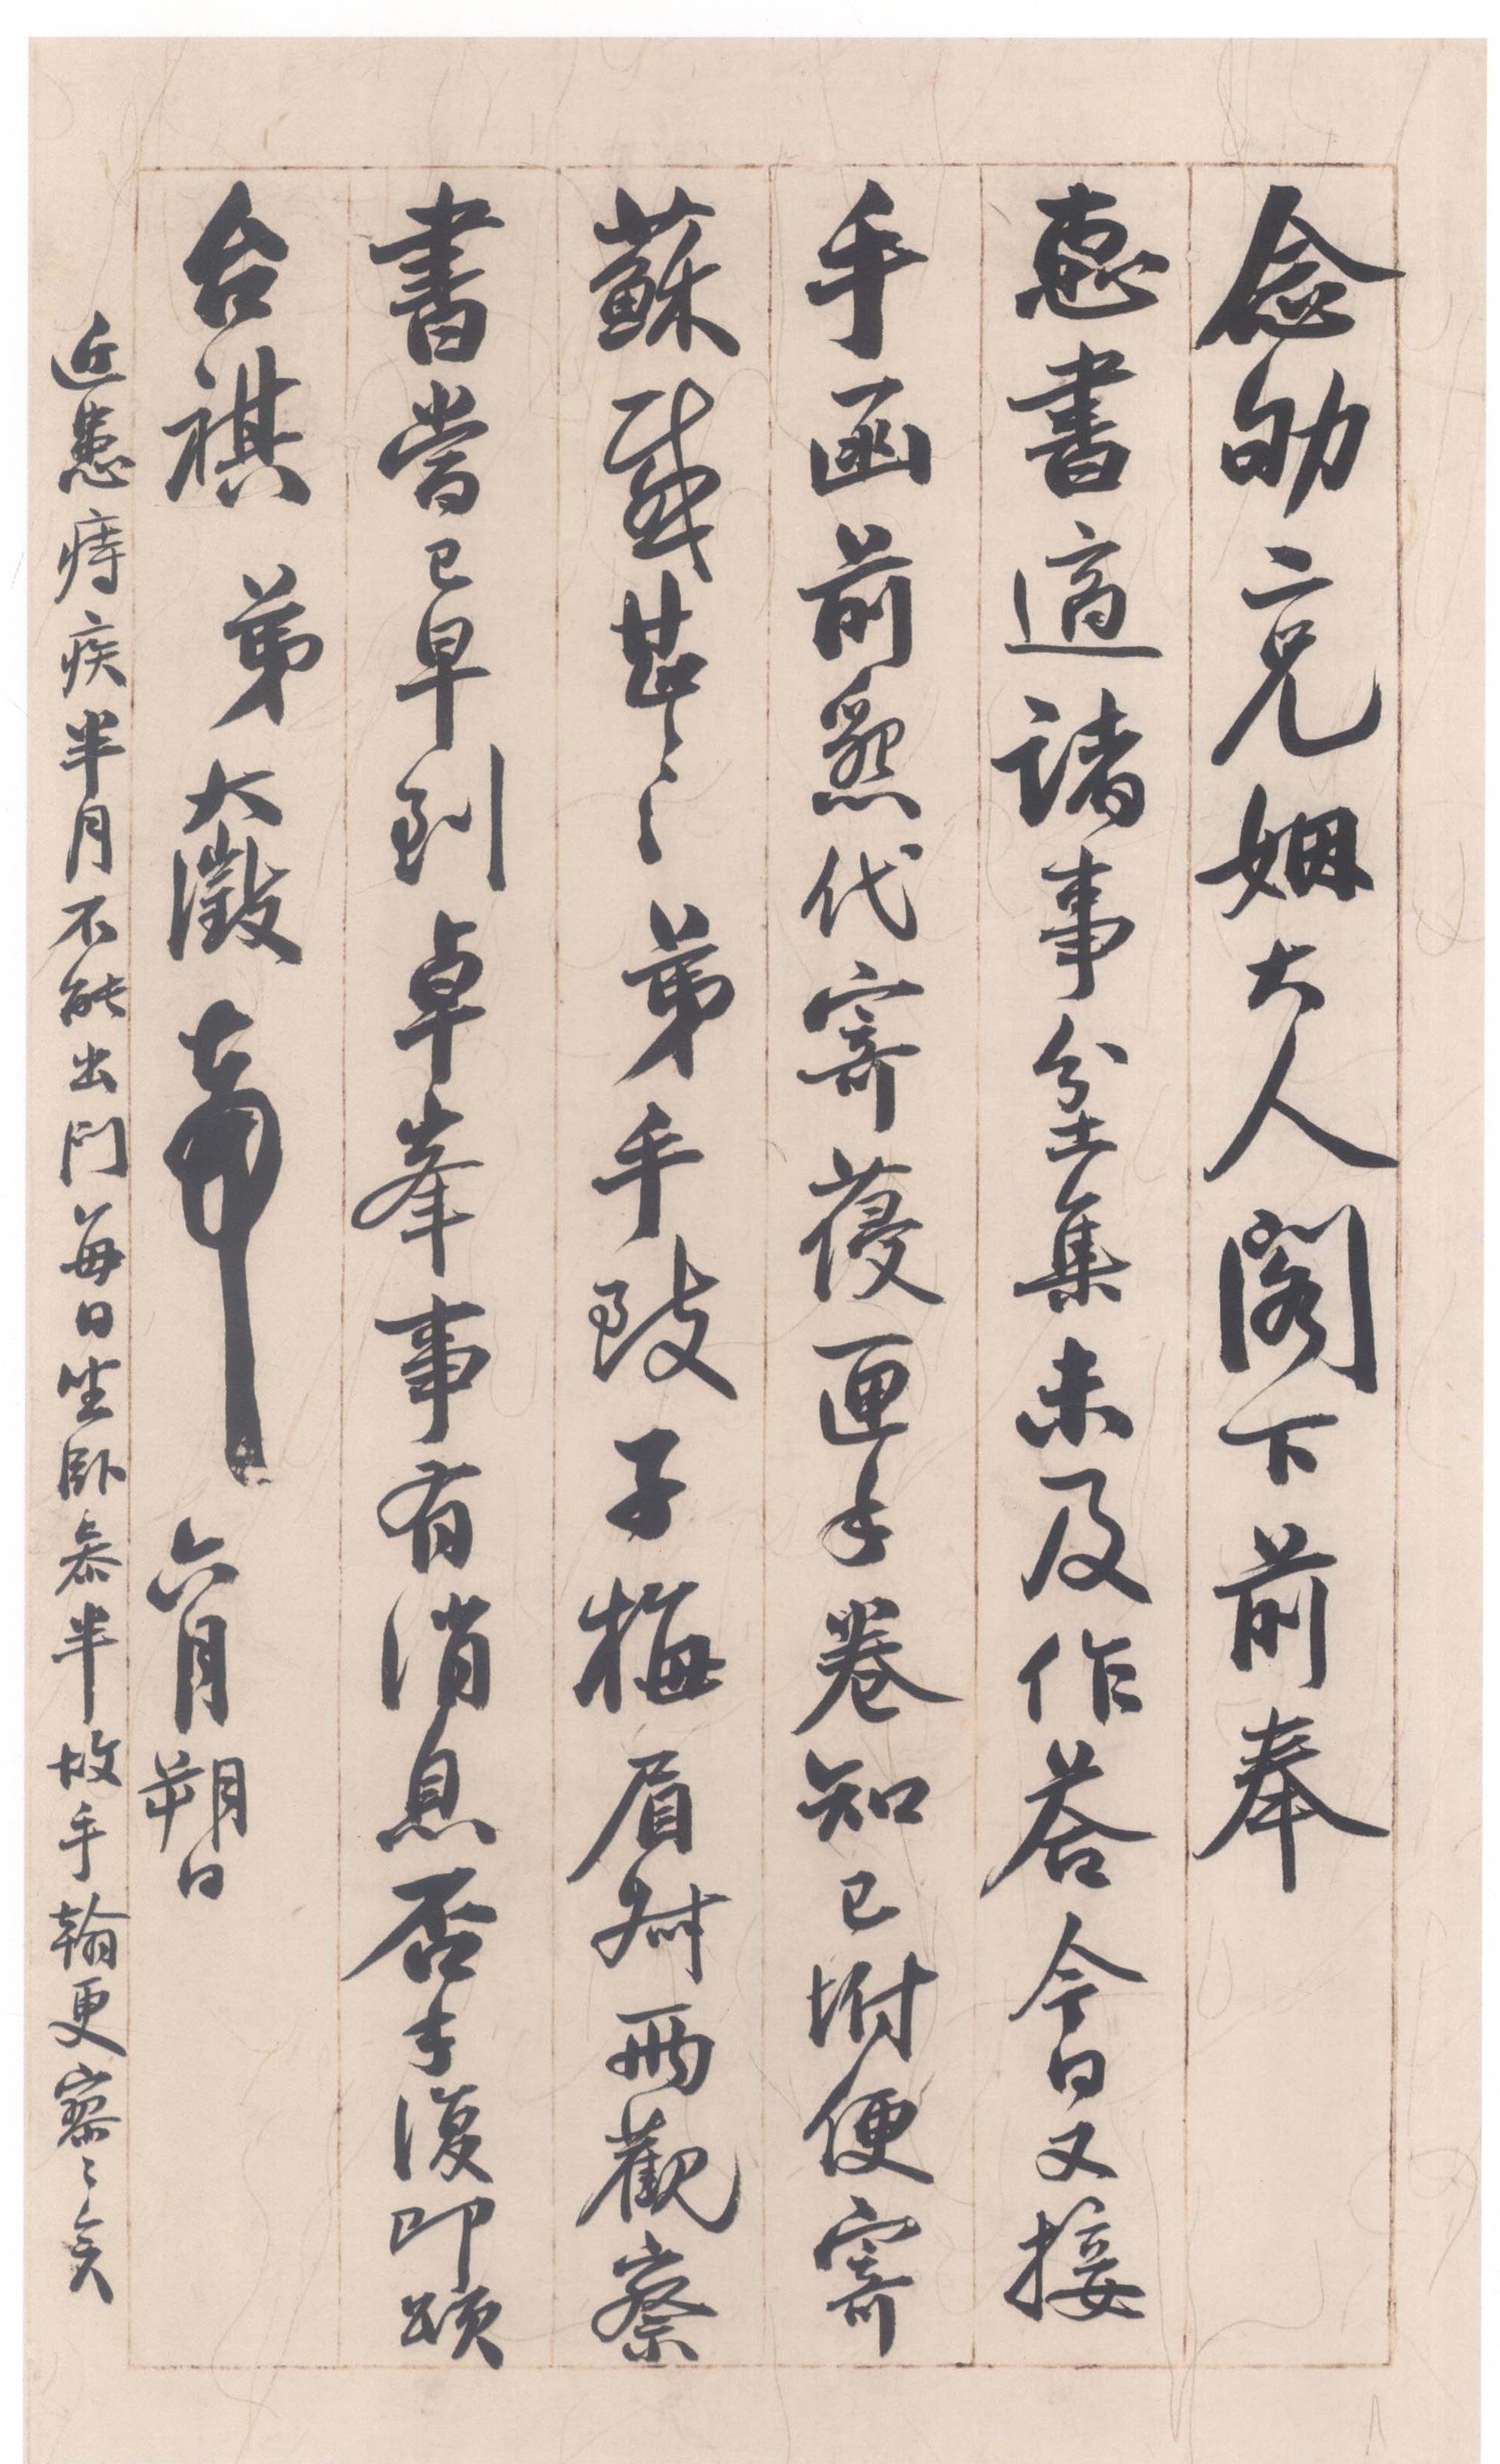 念劬二兄姻大人閣下前奉
惠書適諸事坌集未及作答今日又接
手函前懇代寄葠匣手卷知已坿便寄
蘇感甚感甚弟手致子梅眉叔兩觀察
書嘗已早到卓峯事有消息否手復即頌
台祺 弟大澂 六月朔日
近患痔疾半月不能出門每日坐臥參半故手翰更寥寥矣